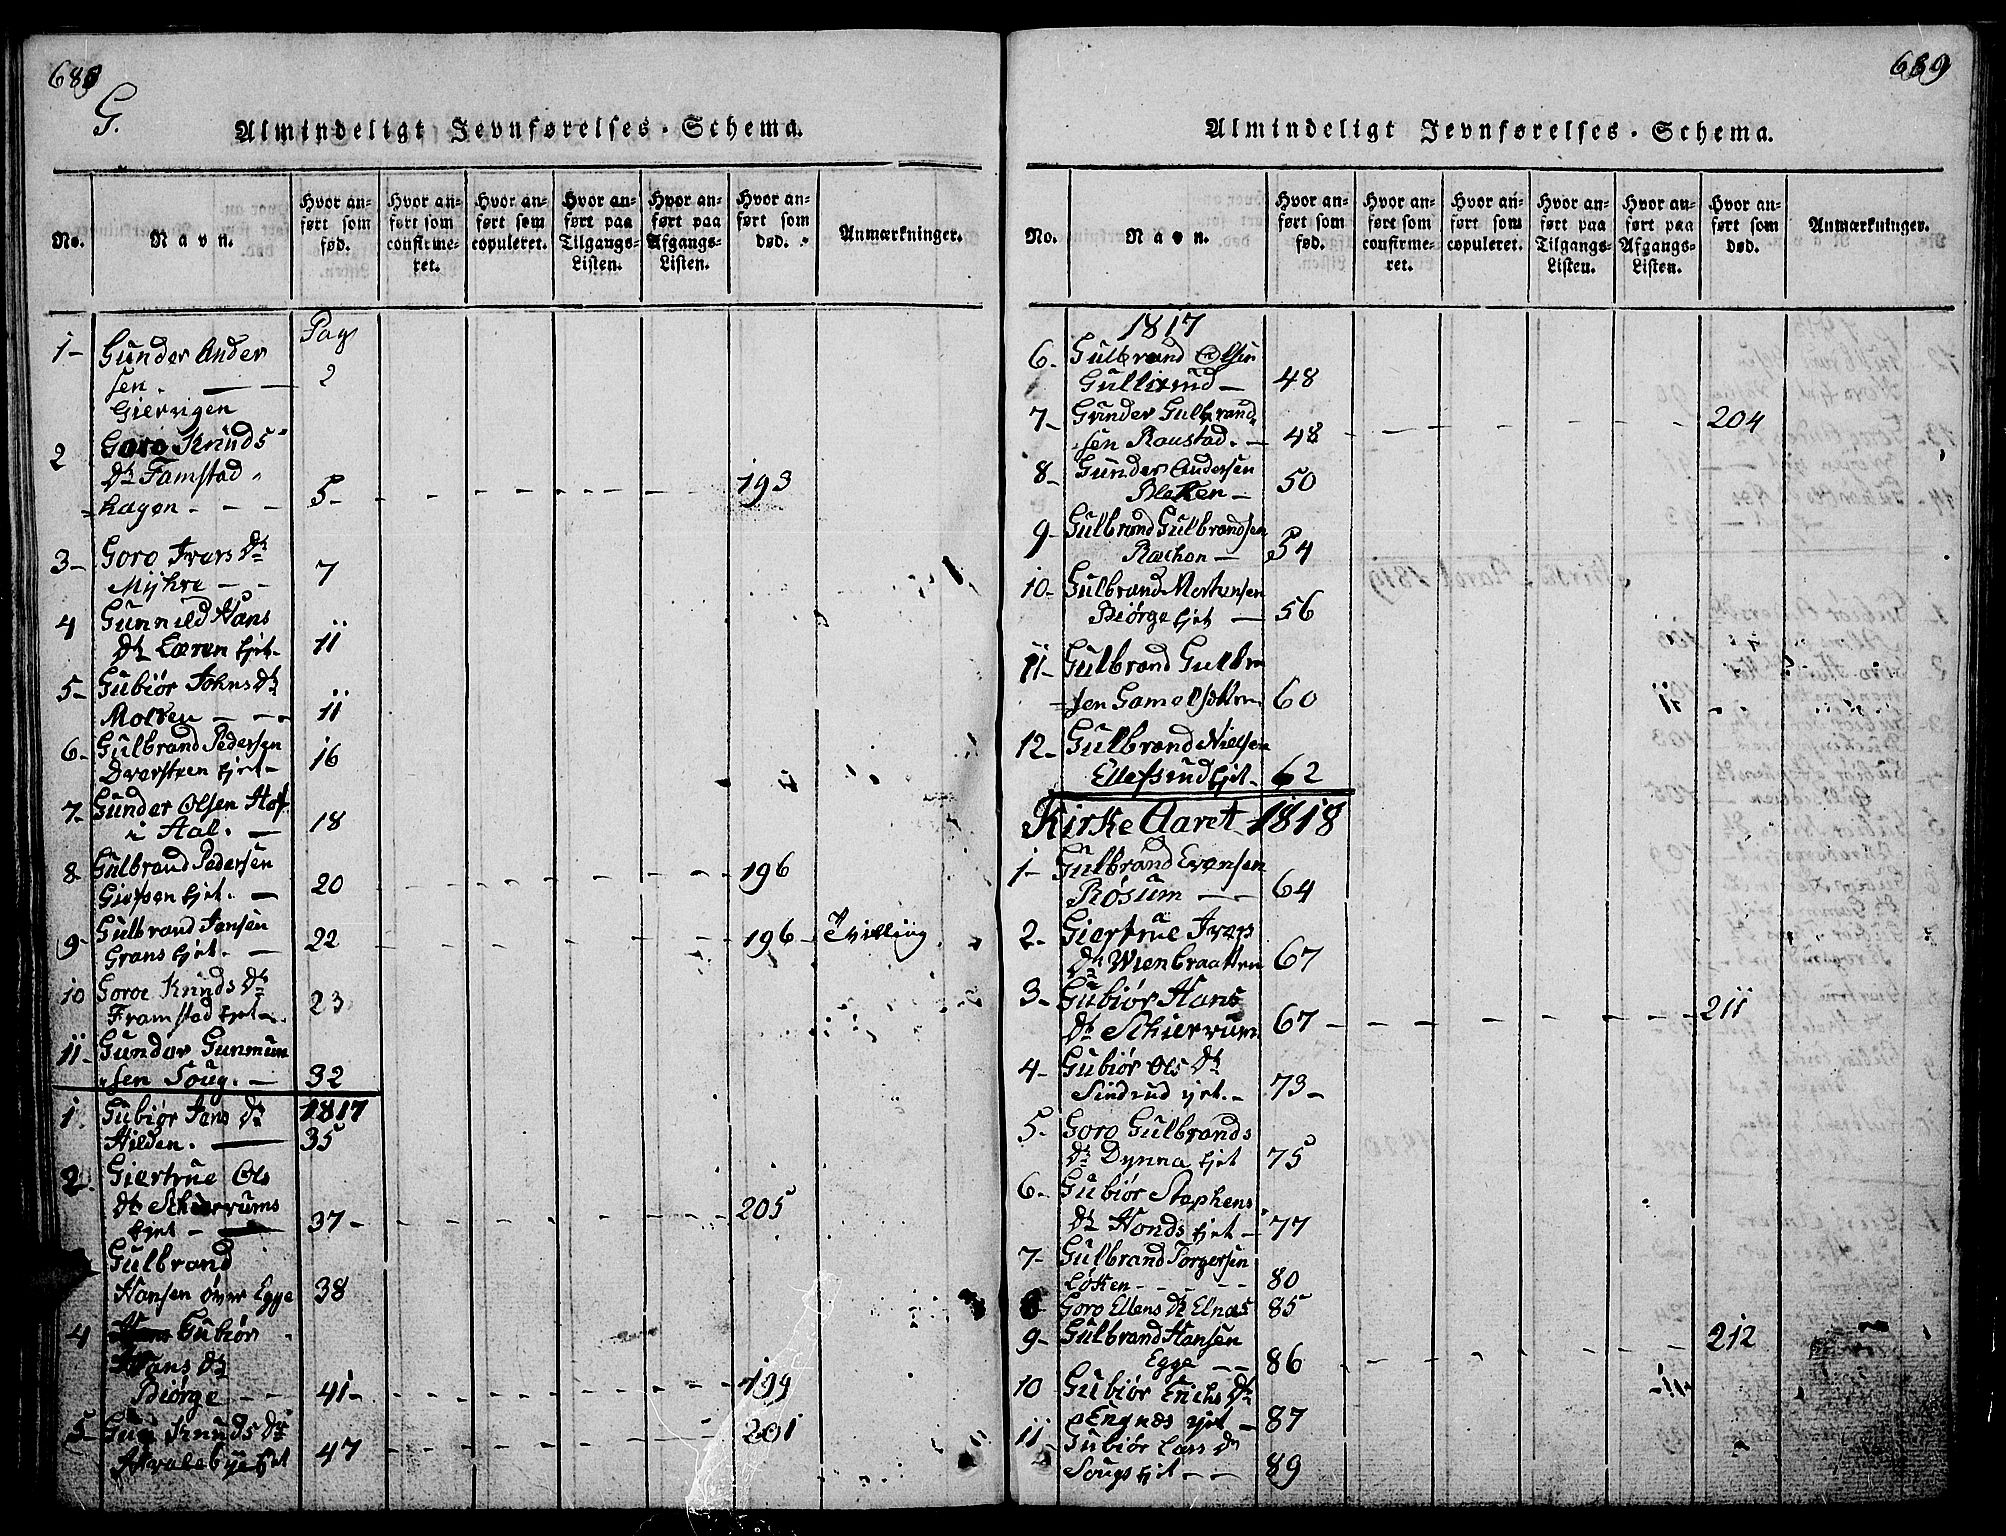 688
G.
Almindeligt Jevnførelses-Schema.
No.
Navn.
Hvor anført som fød.
Hvor anført som confirmeret.
Hvor anført som copuleret.
Hvor anført paa Tilgangs-Listen.
Hvor anført paa Afgangs-Listen.
Hvor anført som død.
Anmærkninger.
Pag
1- Gunder Ander
sen. 2
Gierrigen
2 Goro Knuds
Dr Framstad
hagen - - - 5- 193
3- Goro Ivars Dr
Myhre - - 7
4 Gunnild Hans
Dr Læren Ejet. 11
5- Gubiør Johns Dr
Molden - - - 11
6- Gulbrand Pedersen
Dversteen Ejet- 16
7- Gunder Olsen Hof
i Aal. - 18
8- Gulbrand Pedersen
Ejet. - 20 196
9- Gulbrand Jansen
Grans Ejet. - 22 196- Tvilling
10 Goroe Knuds Dr
Framstad Ejet-. 23
11- Gunder
sen Soug. - 32
1. Gubiør Jans Dr 1817
Hilden. 35
2. Giertrue Ols
Dr Schierrums
Ejet - 37- 205
Gulbrand
Hansen øvre Egge 38
4 Gubiør
Hans Dr
Biørge - - 41- 199
5- Knuds Dr
Ejet 47 201
689
Almindeligt Jevnførelses-Schema.
No.
Navn.
Hvor anført som fød.
Hvor anført som confirmeret.
Hvor anført som copuleret.
Hvor anført paa Tilgangs-Listen.
Hvor anført paa Afgangs-Listen.
Hvor anført som død.
Anmærkninger.
1817
6- Gulbrand Olsen
Gullixrud - 48
7- Gunder Gulbrand
sen Raustad. - 48 204
8- Gunder Andersen
Bleken - 50
9- Gulbrand Gulbrandsen
Rækken - 54
10- Gulbrand Mortensen
Biørge Ejet - 56
11- Gulbrand Gulbran
sen 60
12- Gulbrand Nielsen
Ellefsrud Ejet- 62
Kirke Aaret 1818
1- Gulbrand Evensen
Røsum - - 64
2- Giertrue Ivers
Dr Wienbraatten 67
3- Gubiør Hans
Dr Schierrum 67- 211
4- Gubiør Ols Dr
Sindrud Ejet.- 73-
5- Goro Gulbrands
Dr Dynna Ejet 75
6- Gubiør Stephens
Dr Honds Ejet - 77
7- Gulbrand Torgersen
Løken - - - - 80
8- Goro Ellens Dr Elnæs 85
9- Gulbrand Hansen
Egge - - 86 212
10 Gubiør Erichs Dr
Engnæs Ejet - 87
11- Gubiør Lars Dr
Sougs Ejet - - 89